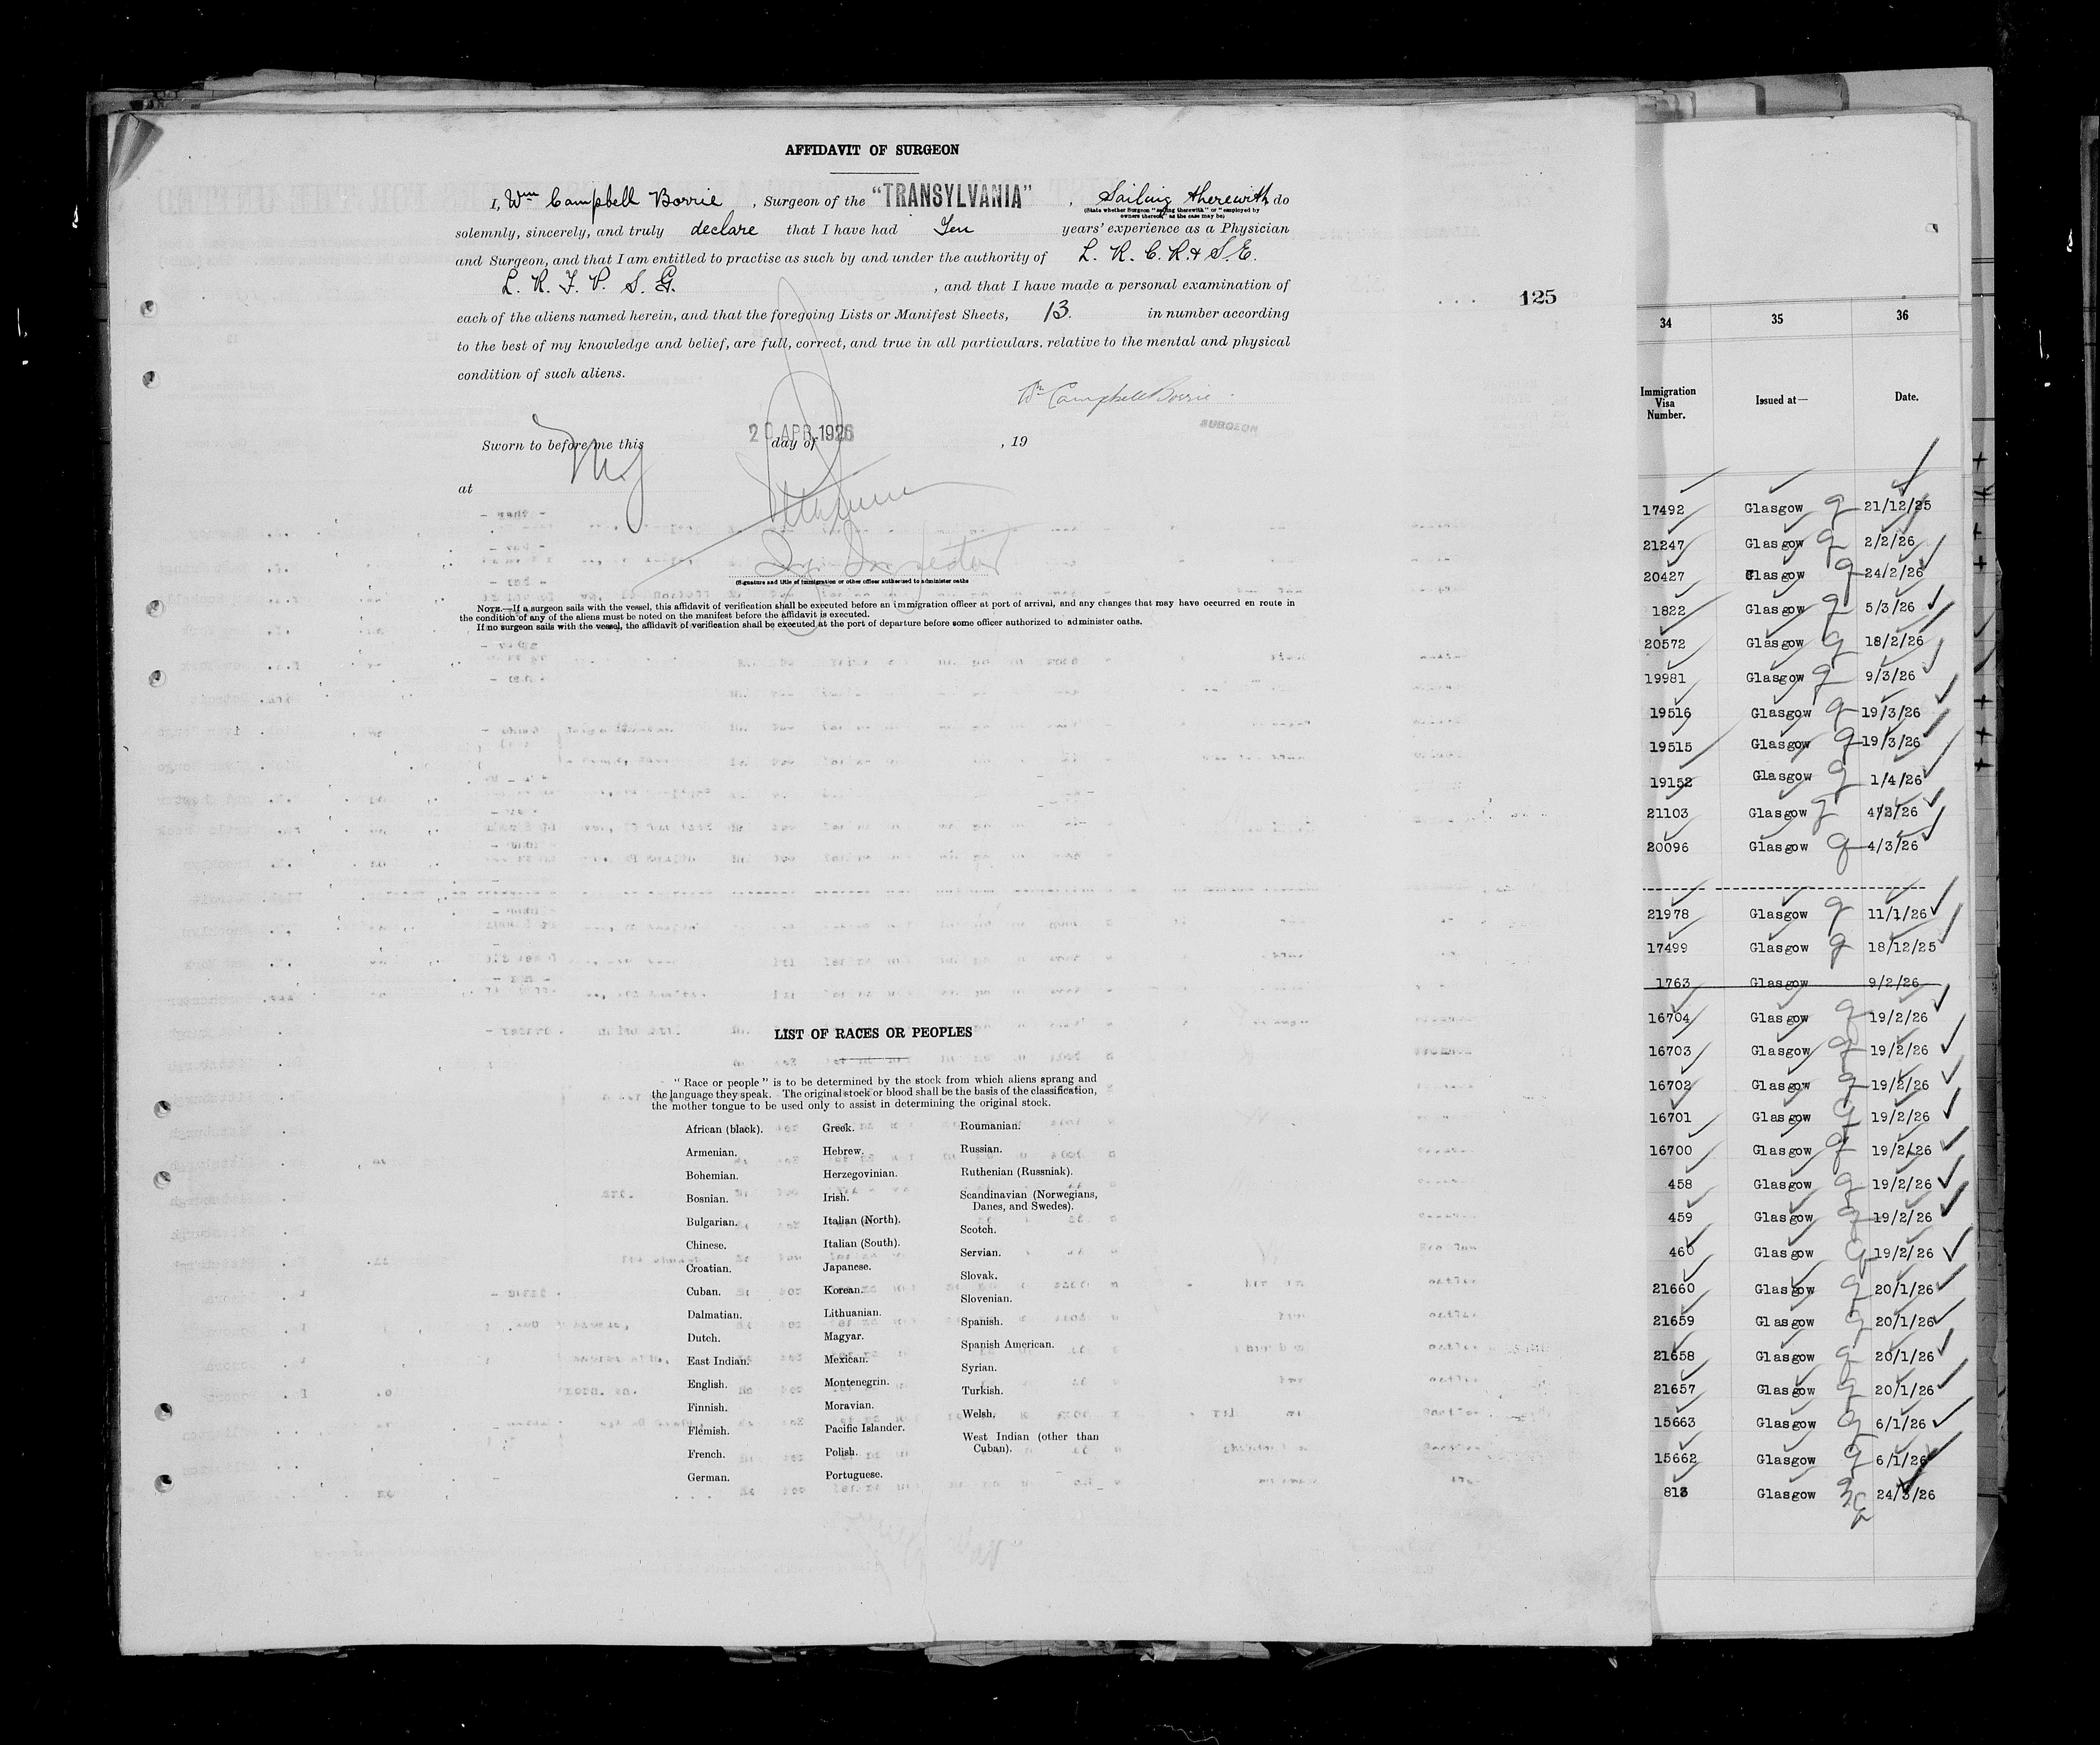 AFFIDAVIT OF SURGEON
I, Wm Campbell Borrie, Surgeon of the "TRANSYLVANIA", Sailing therewith do
(State whether Surgeon "sailing therewith" or "employed by
owners thereof," as the case may be)
solemnly, sincerely, and truly declare that I have had Ten years' experience as a Physician
and Surgeon, and that I am entitled to practise as such by and under the authority of L. R. C. P. & S. E.
L. R. F. P. S. G. , and that I have made a personal examination of
each of the aliens named herein, and that the foregoing Lists or Manifest Sheets, 13. in number according
to the best of my knowledge and belief, are full, correct, and true in all particulars. relative to the mental and physical
condition of such aliens.
Wm Campbell Borrie.
SURGEON
Sworn to before me this 20 APR 1926 day of , 19
at NY
Inspector
(Signature and title of immigration or other officer authorized to administer oaths
NOTE.—If a surgeon sails with the vessel, this affidavit of verification shall be executed before an immigration officer at port of arrival, and any changes that may have occurred en route in
the condition of any of the aliens must be noted on the manifest before the affidavit is executed.
If no surgeon sails with the vessel, the affidavit of verification shall be executed at the port of departure before some officer authorized to administer oaths.
125
LIST OF RACES OR PEOPLES
"Race or people" is to be determined by the stock from which aliens sprang and
the language they speak. The original stock or blood shall be the basis of the classification,
the mother tongue to be used only to assist in determining the original stock.
African (black).
Armenian.
Bohemian.
Bosnian.
Bulgarian.
Chinese.
Croatian.
Cuban.
Dalmatian.
Dutch.
East Indian.
English.
Finnish.
Flemish.
French.
German.
Greek.
Hebrew.
Herzegovinian.
Irish.
Italian (North).
Italian (South).
Japanese.
Korean.
Lithuanian.
Magyar.
Mexican.
Montenegrin.
Moravian.
Pacific Islander.
Polish.
Portuguese.
Roumanian.
Russian.
Ruthenian (Russniak).
Scandinavian (Norwegians,
Danes, and Swedes).
Scotch.
Servian.
Slovak.
Slovenian.
Spanish.
Spanish American.
Syrian.
Turkish.
Welsh.
West Indian (other than
Cuban).
34 35 36
Immigration
Visa
Number. Issued at— Date.
17492 Glasgow 21/12/25
21247 Glasgow 2/2/26
20427 Glasgow 24/2/26
1822 Glasgow 5/3/26
20572 Glasgow 18/2/26
19981 Glasgow 9/3/26
19516 Glasgow 19/3/26
19515 Glasgow 19/3/26
19152 Glasgow 1/4/26
21103 Glasgow 4/3/26
20096 Glasgow 4/3/26
21978 Glasgow 11/1/26
17499 Glasgow 18/12/25
1763 Glasgow 9/2/26
16704 Glasgow 19/2/26
16703 Glasgow 19/2/26
16702 Glasgow 19/2/26
16701 Glasgow 19/2/26
16700 Glasgow 19/2/26
458 Glasgow 19/2/26
459 Glasgow 19/2/26
460 Glasgow 19/2/26
21660 Glasgow 20/1/26
21659 Glasgow 20/1/26
21658 Glasgow 20/1/26
21657 Glasgow 20/1/26
15663 Glasgow 6/1/26
15662 Glasgow 6/1/26
813 Glasgow 24/3/26